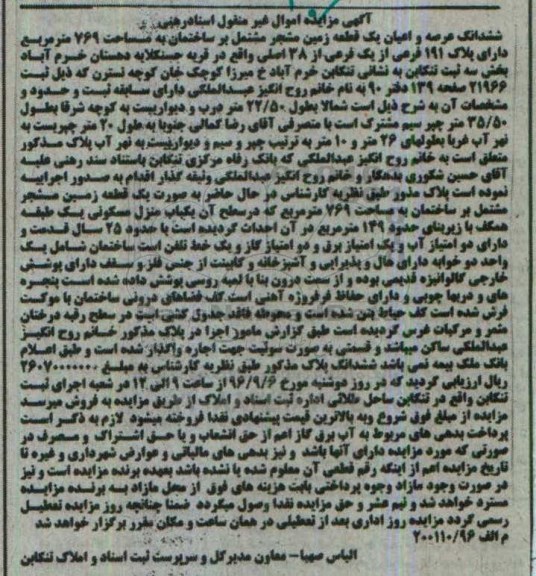 آگهی مزایده اموال غیر منقول اسنادرهنی
ششدانگ عرصه و اعیان یک قطعه زمین مشجر مشتمل بر ساختمان به مساحت ۷۶۹ مترمربع
دارای پلاک ۱۹۱ فرعی از یک فرعی از ۳۸ اصلی واقع در قریه جسنگلایه دهستان خرم آباد
بخش سه ثبت تنکابن به نشانی تنکابن خرم آباد خ میرزا کوچک خان کوچه نسترن که ذیل ثبت
۲۱۹۶۶ صفحه ۱۳۹ دفتر ۹۰ به نام خانم روح انگیز عبدالملکی دارای سابقه ثبت و حدود و
مشخصات آن به شرح ذیل است شمالا بطول ۲۲/۵۰ متر درب و دیواریست به کوچه شرقا بطول
۳۵/۵۰ متر چپر سیم مشترک است با متصرفی آقای رضا کمالی جنوبا به طول ۲۰ متر چپریست به
نهر آب غربا بطولهای ۲۶ متر و ۱۰ متر به ترتیب چپر و سیم و دیواریست به نهر آب پلاک مذکور
متعلق است به خانم روح انگیز عبدالملکی که بانک رفاه مرکزی تنکابن باستناد سند رهنی علیه
آقای حسین شکوری بدهکار و خانم روح انگیز عبدالملکی وثیقه گذار اقدام به صدور اجراییه
نموده است پلاک مذور طبق نظریه کارشناس در حال حاضر به صورت یک قطعه زمین مشجر
مشتمل بر ساختمان به مساحت ۷۶۹ مترمربع که درسطح آن یکباب منزل مسکونی یک طبقه
همکف با زیربنای حدود ۱۴۹ مترمربع در آن احداث گردیده است با حدود ۲۵ سال قدمت و
دارای دو امتیاز آب و یک امتیاز برق و دو امتیاز گاز و یک خط تلفن است ساختمان شامل یک
واحد دو خوابه دارای هال و پذیرایی و آشپزخانه و کابینت از جنس فلز و سقف دارای پوشش
خارجی گالوانیزه قدیمی بوده و از سمت درون بنا با لمبه روسی پوشش داده شده است پنجره
های و دربها چوبی و دارای حفاظ فرفورژه آهنی است کف فضاهای درونی ساختمان با موکت
فرش شده است کف حیاط بتن شده است و محوطه فاقد جدول کشی است در سطح رقبه درختان
مثمر و مرکبات غرس گردیده است طبق گزارش مامور اجرا در پلاک مذکور خانم روح انگیز
عبدالملکی ساکن میباشد و قسمتی به صورت سوئیت جهت اجاره واگذار شده است و طبق اعلام
بانک ملک بیمه نمی باشد ششدانگ پلاک مذکور طبق نظریه کارشناس به مبلغ ۲۶۰۷۰۰۰۰۰۰
ریال ارزیابی گردید که در روز دوشنبه مورخ ۹۶/۹/۶ از ساعت ۹ الی ۱۲ در شعبه اجرای ثبت
تنکابن واقع در تنکابن ساحل طلائی اداره ثبت اسناد و املاک از طریق مزایده به فروش میرسد
مزایده از مبلغ فوق شروع وبه بالاترین قیمت پیشنهادی نقدا فروخته میشود لازم به ذکر است
پرداخت بدهی های مربوط به آب برق گاز اعم از حق انشعاب و یا حق اشتراک و مصرف در
صورتی که مورد مزایده دارای آنها باشد و نیز بدهی های مالیاتی و عوارض شهرداری و غیره تا
تاریخ مزایده اعم از اینکه رقم قطعی آن معلوم شده یا نشده باشد بعهده برنده مزایده است و نیز
در صورت وجود مازاد وجوه پرداختی بابت هزینه های فوق از محل مازاد به برنده مزایده
مسترد خواهد شد و نیم عشر و حق مزایده نقدا وصول میگردد ضمنا چنانچه روز مزایده تعطیل
رسمی گردد مزایده روز اداری بعد از تعطیلی در همان ساعت و مکان مقرر برگزار خواهد شد
م الف ۲۰۰۱۱۰/۹۶
الیاس صهبا- معاون مدیرکل و سرپرست ثبت اسناد و املاک تنکابن